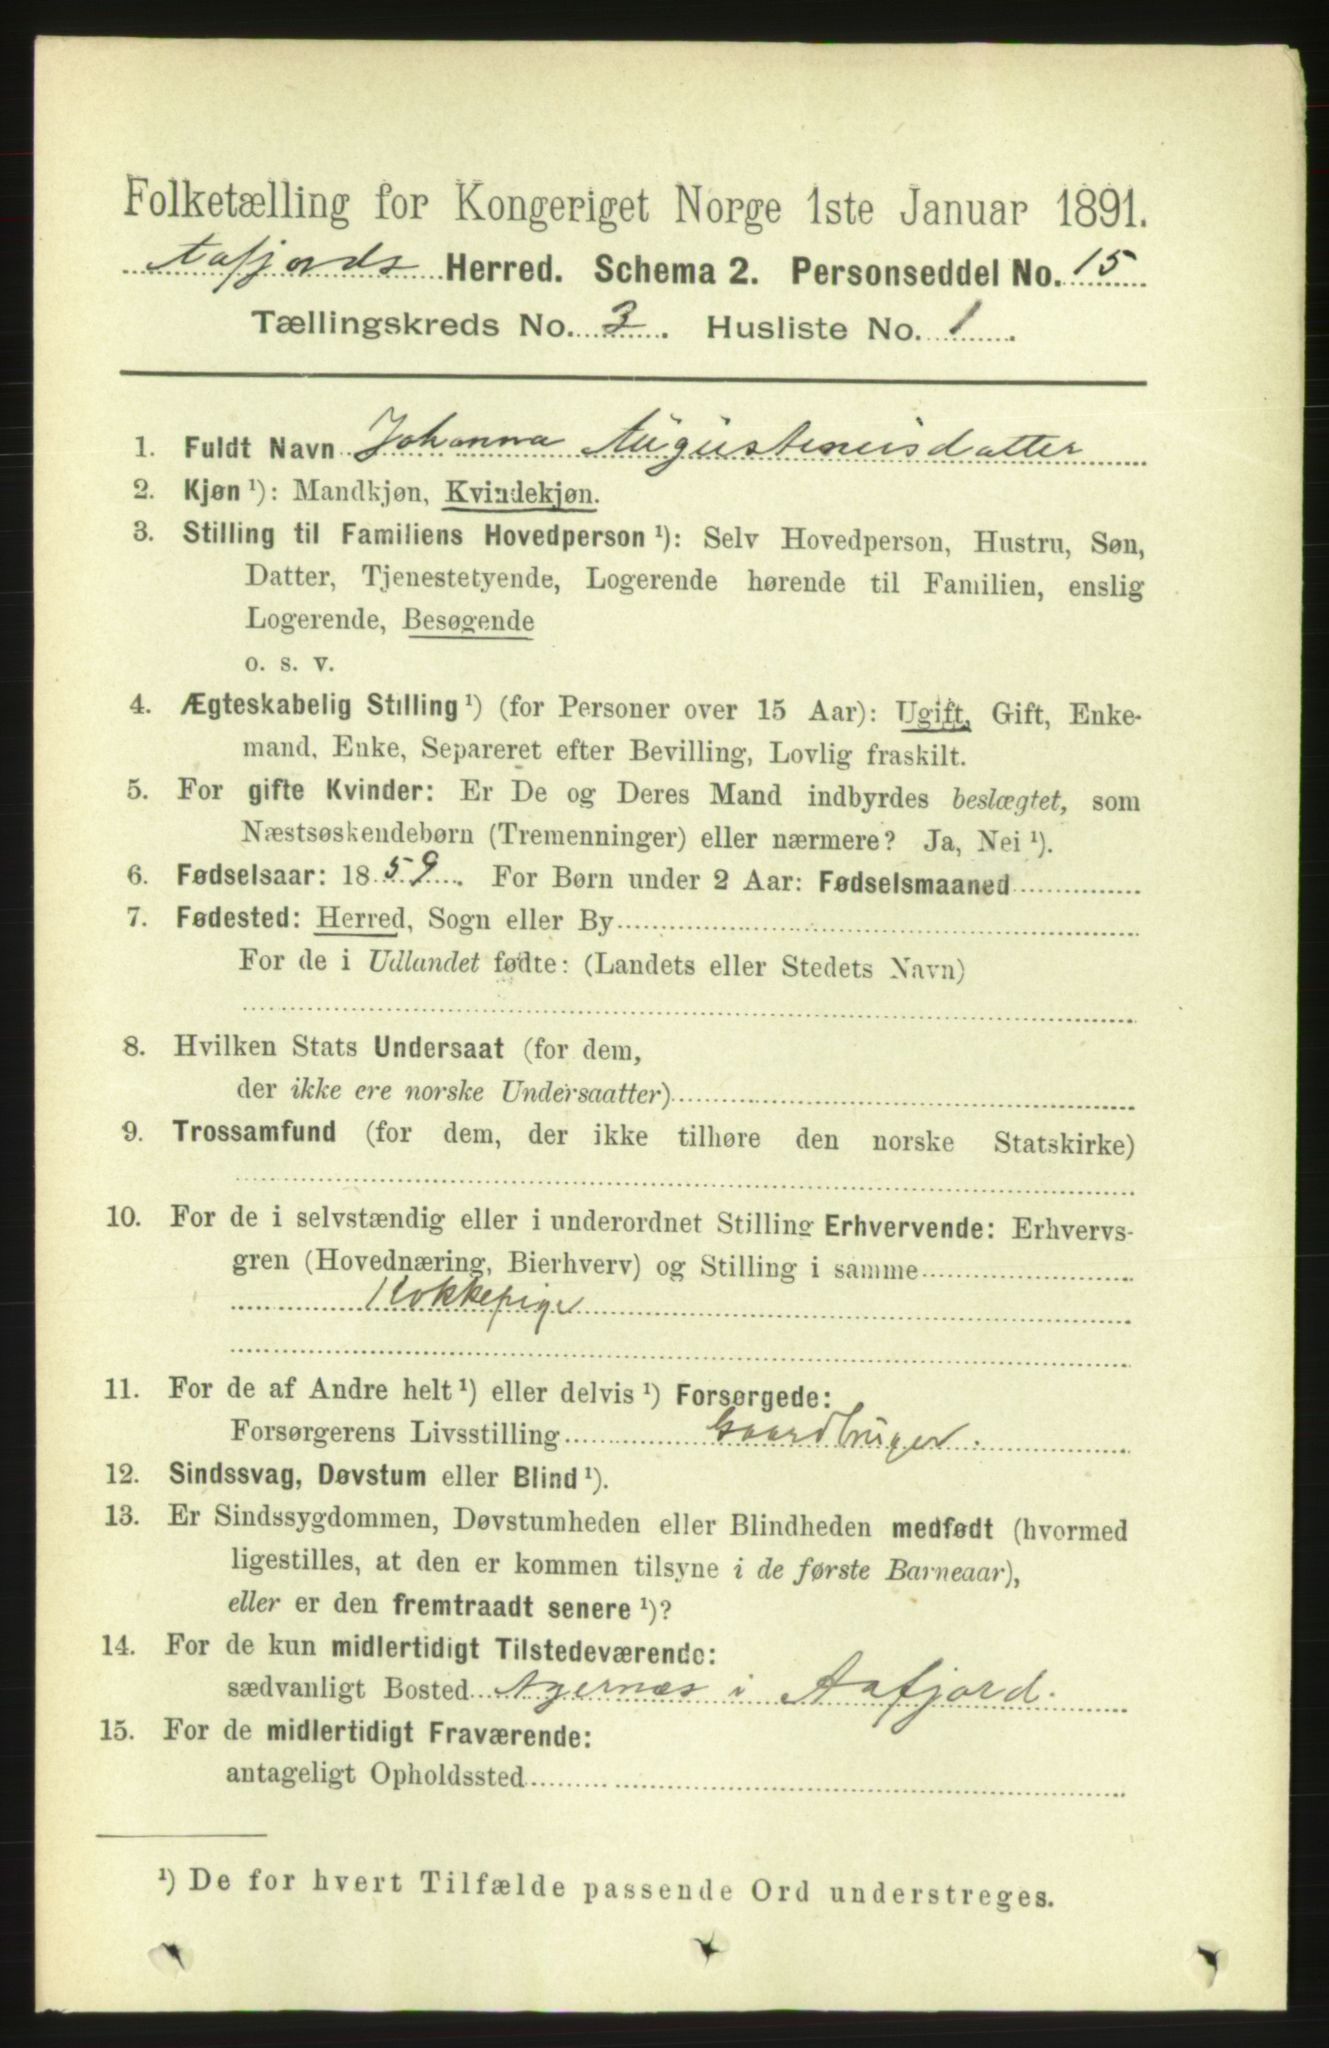 Folketælling for Kongeriget Norge 1ste Januar 1891.
Aafjords Herred. Schema 2. Personseddel No. 15
Tællingskreds No. 3. Husliste No. 1.
1. Fuldt Navn Johanna Augusteneusdatter
2. Kjøn ¹): Mandkjøn, Kvindekjøn.
3. Stilling til Familiens Hovedperson ¹): Selv Hovedperson, Hustru, Søn,
Datter, Tjenestetyende, Logerende hørende til Familien, enslig
Logerende, Besøgende
o. s. v.
4. Ægteskabelig Stilling ¹) (for Personer over 15 Aar): Ugift, Gift, Enke-
mand, Enke, Separeret efter Bevilling, Lovlig fraskilt.
5. For gifte Kvinder: Er De og Deres Mand indbyrdes beslægtet, som
Næstsøskendebørn (Tremenninger) eller nærmere? Ja, Nei ¹).
6. Fødselsaar: 1859. For Børn under 2 Aar: Fødselsmaaned
7. Fødested: Herred, Sogn eller By
For de i Udlandet fødte: (Landets eller Stedets Navn)
8. Hvilken Stats Undersaat (for dem,
der ikke ere norske Undersaatter)
9. Trossamfund (for dem, der ikke tilhøre den norske Statskirke)
10. For de i selvstændig eller i underordnet Stilling Erhvervende: Erhvervs-
gren (Hovednæring, Bierhverv) og Stilling i samme
Kokkepige
11. For de af Andre helt ¹) eller delvis ¹) Forsørgede:
Forsørgerens Livsstilling Gaardbruger.
12. Sindssvag, Døvstum eller Blind ¹).
13. Er Sindssygdommen, Døvstumheden eller Blindheden medfødt (hvormed
ligestilles, at den er kommen tilsyne i de første Barneaar),
eller er den fremtraadt senere ¹)?
14. For de kun midlertidigt Tilstedeværende:
sædvanligt Bosted Agernæs i Aafjord.
15. For de midlertidigt Fraværende:
antageligt Opholdssted
¹) De for hvert Tilfælde passende Ord understreges.